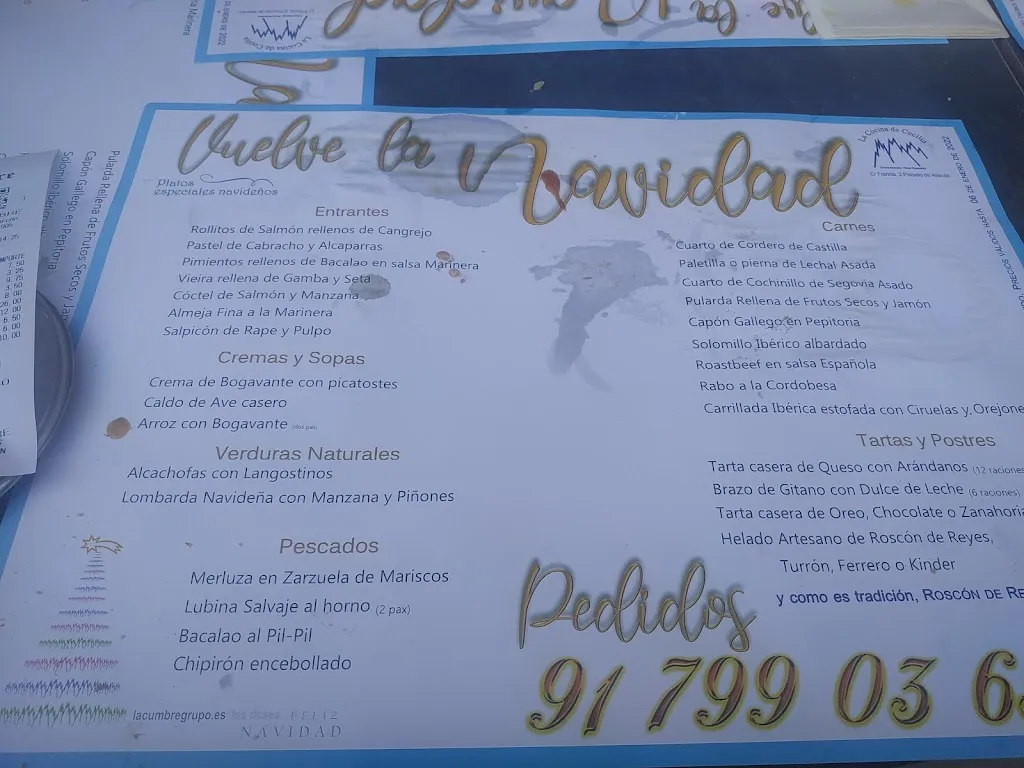 Vuelve la Navidad
Platos
especiales navideños
Entrantes
Rollitos de Salmón rellenos de Cangrejo
Pastel de Cabracho y Alcaparras
Pimientos rellenos de Bacalao en salsa Marinera
Vieira rellena de Gamba y Seta
Cóctel de Salmón y Manzana
Almeja Fina a la Marinera
Salpicón de Rape y Pulpo
Cremas y Sopas
Crema de Bogavante con picatostes
Caldo de Ave casero
Arroz con Bogavante
Verduras Naturales
Alcachofas con Langostinos
Lombarda Navideña con Manzana y Piñones
Pescados
Merluza en Zarzuela de Mariscos
Lubina Salvaje al horno (2 pax)
Bacalao al Pil-Pil
Chipirón encebollado
lacumbregrupo.es les desea FELIZ
NAVIDAD
La Cocina de Cecilia
PRECIOS VÁLIDOS HASTA 06 DE ENERO DE 2022
Carnes
Cuarto de Cordero de Castilla
Paletilla o pierna de Lechal Asada
Cuarto de Cochinillo de Segovia Asado
Pularda Rellena de Frutos Secos y Jamón
Capón Gallego en Pepitoria
Solomillo Ibérico albardado
Roastbeef en salsa Española
Rabo a la Cordobesa
Carrillada Ibérica estofada con Ciruelas y Orejone
Tartas y Postres
Tarta casera de Queso con Arándanos (12 raciones
Brazo de Gitano con Dulce de Leche (6 raciones)
Tarta casera de Oreo, Chocolate o Zanahoria
Helado Artesano de Roscón de Reyes,
Turrón, Ferrero o Kinder
y como es tradición, ROSCÓN DE RE
Pedidos
91 799 03 6
Pularda Rellena de Frutos Secos y Jam
Capón Gallego en Pepitoria
Solomillo Ibérico
DE ENERO DE 2022
La Cocina de Cecilia